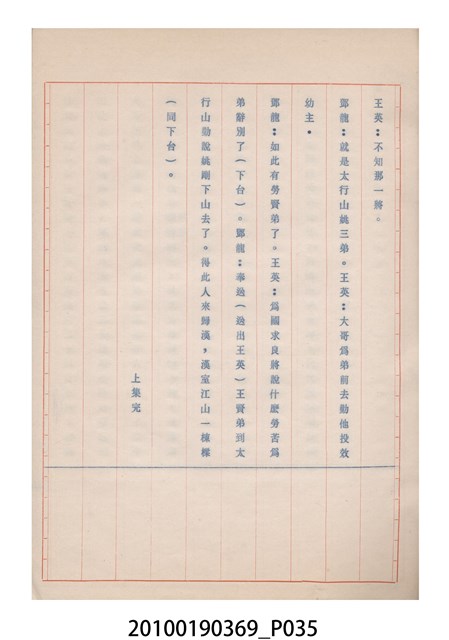 王英：不知那一將。
鄧龍：就是太行山姚三弟。王英：大哥爲弟前去勸他投效
幼主。
鄧龍：如此有勞賢弟了。王英：爲國求良將說什麼勞苦爲
弟辭別了（下台）。鄧龍：奉過（過出王英）王賢弟到太
行山勸說姚剛下山去了。得此人來歸漢，漢室江山一棟樑
（同下台）。
上集完
20100190369_P035